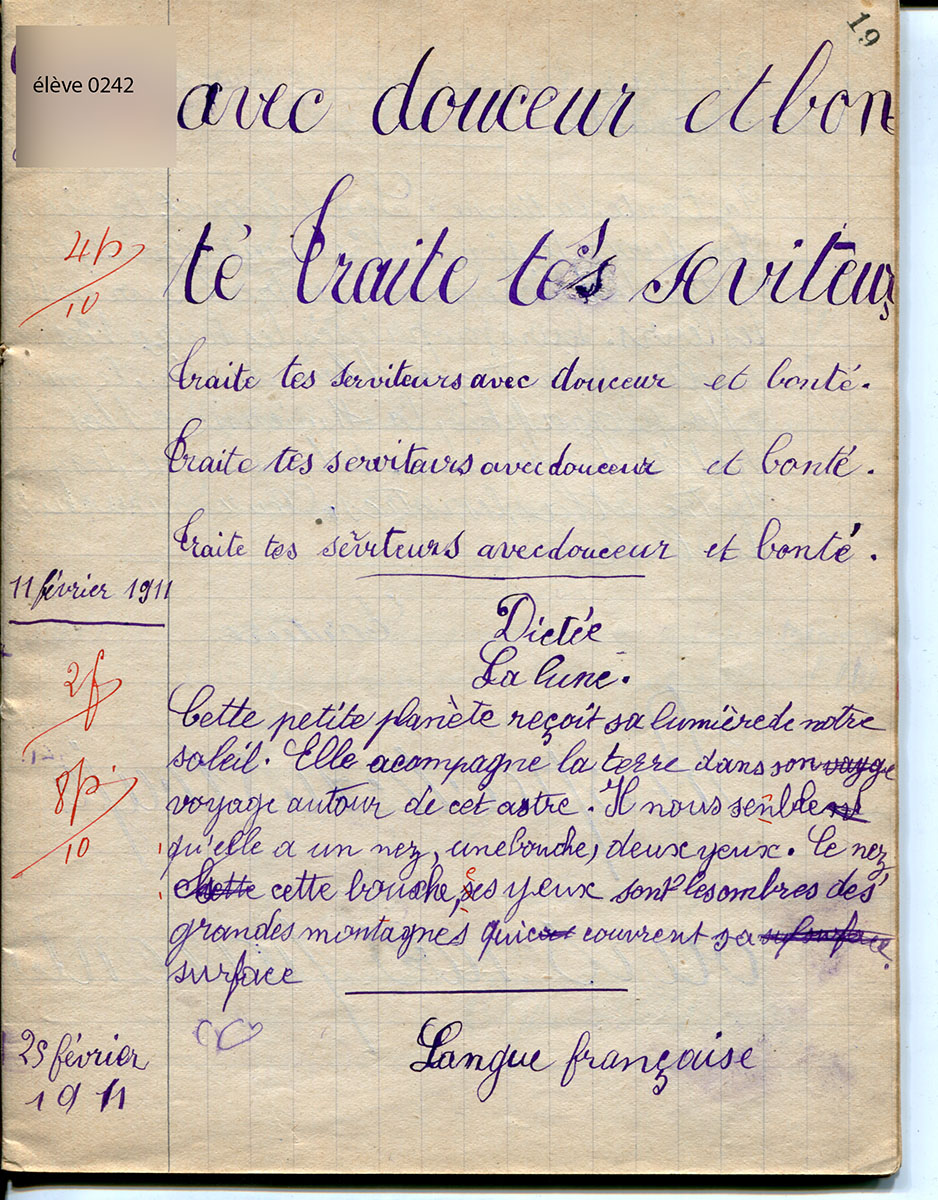 19
élève 0242
avec douceur et bon
té traite tes seviteurs
4p
10
traite tes serviteurs avec douceur et bonté.
traite tes servitaurs avec douceur et bonté.
traite tes serviteurs avec douceur et bonté.
11 février 1911
Dictée
La lune.
2f
Cette petite planète reçoit sa lumière de notre
soleil. Elle acompagne la terre dans son vayge
voyage autour de cet astre. Il nous senble
8p.
10
qu'elle a un nez, une bouche, deux yeux. Ce nez,
cette bouche, ses yeux sont les ombres des
grandes montagnes qui couvrent sa
surface
25 février
1911
Langue française